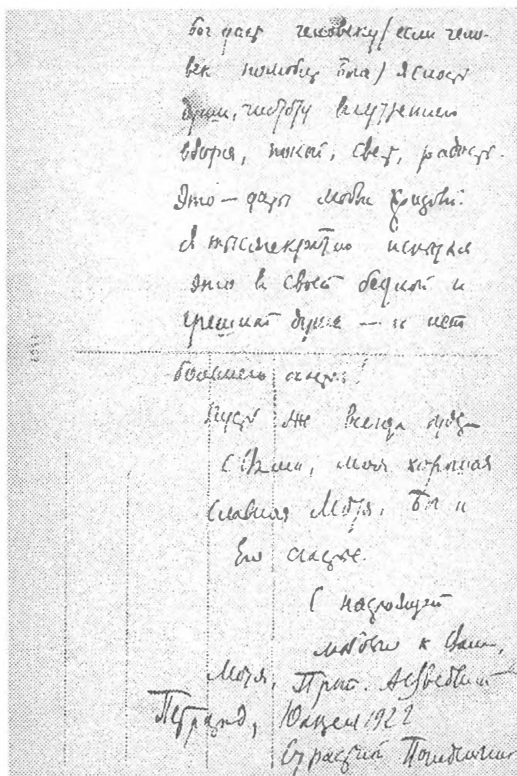 бог даст человеку (если чело-
век полюбит Бога) ясность
души, чистоту внутреннего
взора, покой, свет, радость.
Это — дары любви Христовой.
Я тысячекратно испытал
это в своей бедной и
грешной душе — и нет
большего счастья!
Пусть же всегда будет
с Вами, моя хорошая
славная Мотя, Бог и
Его счастье.
С настоящей
любовью к Вам,
Мотя, Прот.
Петрогр, 1922
Страстной